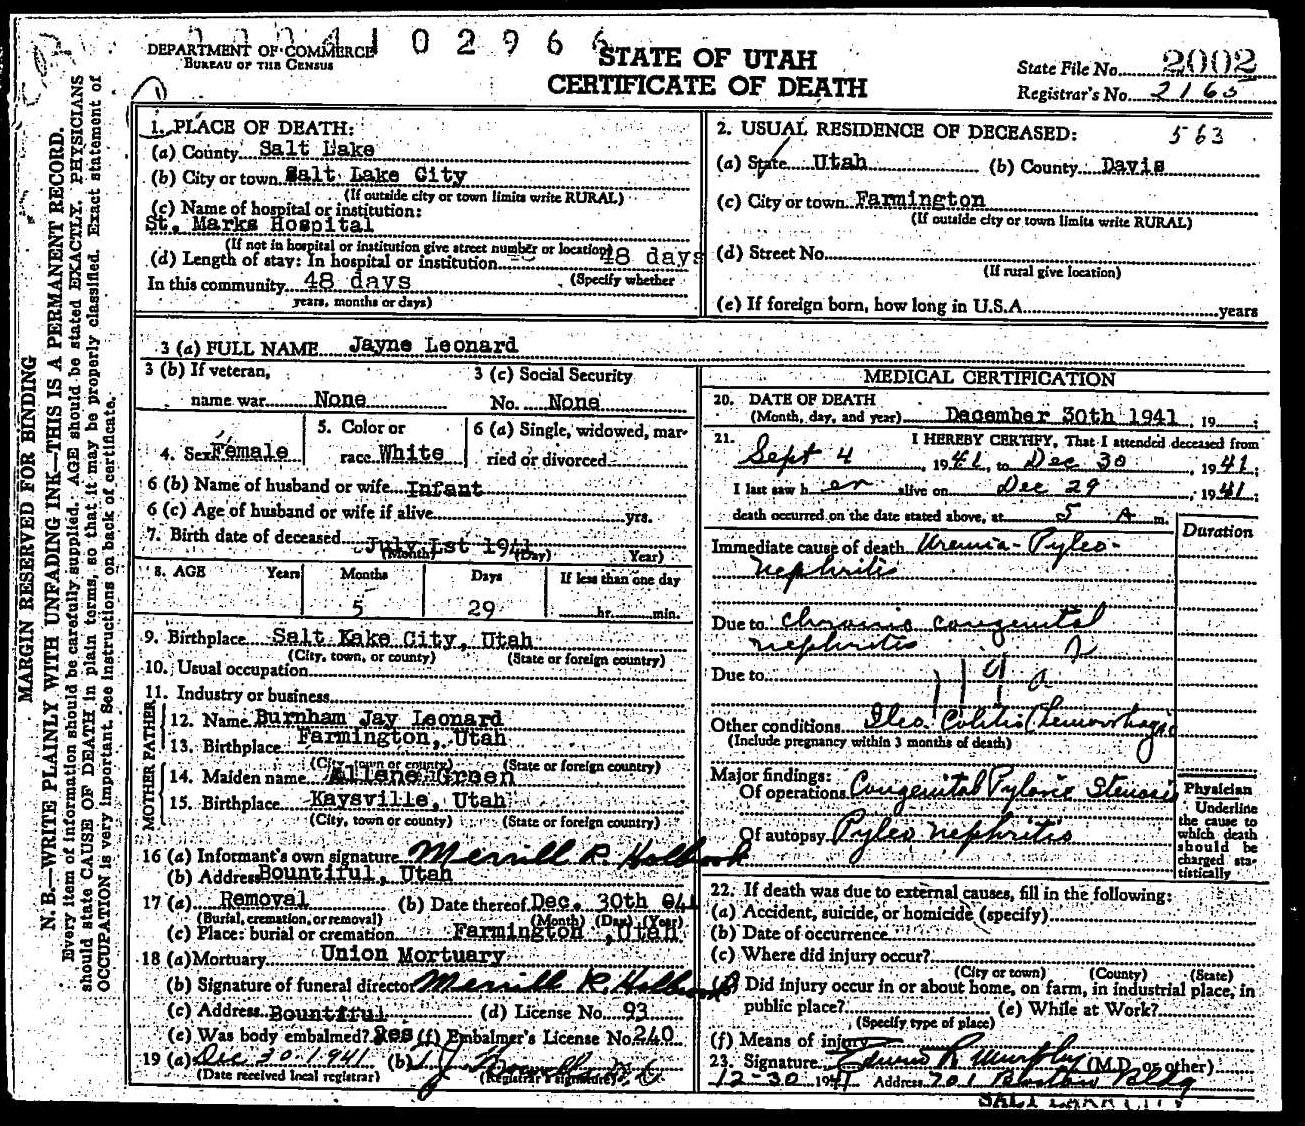 DEPARTMENT OF COMMERCE
BUREAU OF THE CENSUS
1 0 2 9 6 6
STATE OF UTAH
CERTIFICATE OF DEATH
State File No. 2002
Registrar's No. 2165
MARGIN RESERVED FOR BINDING
N. B.—WRITE PLAINLY WITH UNFADING INK—THIS IS A PERMANENT RECORD.
Every item of information should be carefully supplied. AGE should be stated EXACTLY. PHYSICIANS
should state CAUSE OF DEATH in plain terms, so that it may be properly classified. Exact statement of
OCCUPATION is very important. See instructions on back of certificate.
1. PLACE OF DEATH:
(a) County Salt Lake
(b) City or town Salt Lake City
(If outside city or town limits write RURAL)
(c) Name of hospital or institution:
St. Marks Hospital
(If not in hospital or institution give street number or location)
(d) Length of stay: In hospital or institution 48 days
(Specify whether
In this community 48 days
years, months or days)
2. USUAL RESIDENCE OF DECEASED: 563
(a) State Utah (b) County Davis
(c) City or town Farmington
(If outside city or town limits write RURAL)
(d) Street No.
(If rural give location)
(e) If foreign born, how long in U.S.A. years
3 (a) FULL NAME Jayne Leonard
3 (b) If veteran, 3 (c) Social Security
name war None No. None
4. Sex Female 5. Color or race White 6 (a) Single, widowed, married or divorced
6 (b) Name of husband or wife Infant
6 (c) Age of husband or wife if alive yrs.
7. Birth date of deceased July 1st 1941
(Month) (Day) Year)
8. AGE Years Months Days If less than one day
5 29 hr. min.
9. Birthplace Salt Kake City, Utah
(City, town, or county) (State or foreign country)
10. Usual occupation
11. Industry or business
FATHER
12. Name Burnham Jay Leonard
13. Birthplace Farmington, Utah
(City, town or county) (State or foreign country)
MOTHER
14. Maiden name Allene Green
15. Birthplace Kaysville, Utah
(City, town or county) (State or foreign country)
16 (a) Informant's own signature Merrill R. Holbrook
(b) Address Bountiful, Utah
17 (a) Removal (b) Date thereof Dec. 30th 941
(Burial, cremation, or removal) (Month) (Day) (Year)
(c) Place: burial or cremation Farmington, Utah
18 (a) Mortuary Union Mortuary
(b) Signature of funeral director Merrill R. Holbrook
(c) Address Bountiful (d) License No. 93
(e) Was body embalmed? Yes (f) Embalmer's License No. 240
19 (a) Dec 30 1941 (b)
(Date received local registrar) (Registrar's signature)
MEDICAL CERTIFICATION
20. DATE OF DEATH
(Month, day, and year) December 30th 1941, 19
21. I HEREBY CERTIFY, That I attended deceased from
Sept 4, 1941, to Dec 30, 1941;
I last saw h er alive on Dec 29, 1941;
death occurred on the date stated above, at 5 A m.
Duration
Immediate cause of death Uremia - Pyleo-
nephritis
Due to Chronic congenital
nephritis
Due to
Other conditions Ileo Colitis (hemorrhagic
(Include pregnancy within 3 months of death)
Major findings:
Of operations Congenital Pyloric Stenosis
Of autopsy Pyleo nephritis
Physician
Underline
the cause to
which death
should be
charged sta-
tistically
22. If death was due to external causes, fill in the following:
(a) Accident, suicide, or homicide (specify)
(b) Date of occurrence
(c) Where did injury occur?
(City or town) (County) (State)
Did injury occur in or about home, on farm, in industrial place, in
public place? (e) While at Work?
(Specify type of place)
(f) Means of injury
23. Signature Edwin R Murphy (M.D. or other)
12-30 1941 Address 701 Boston Bldg
SALT LAKE CITY